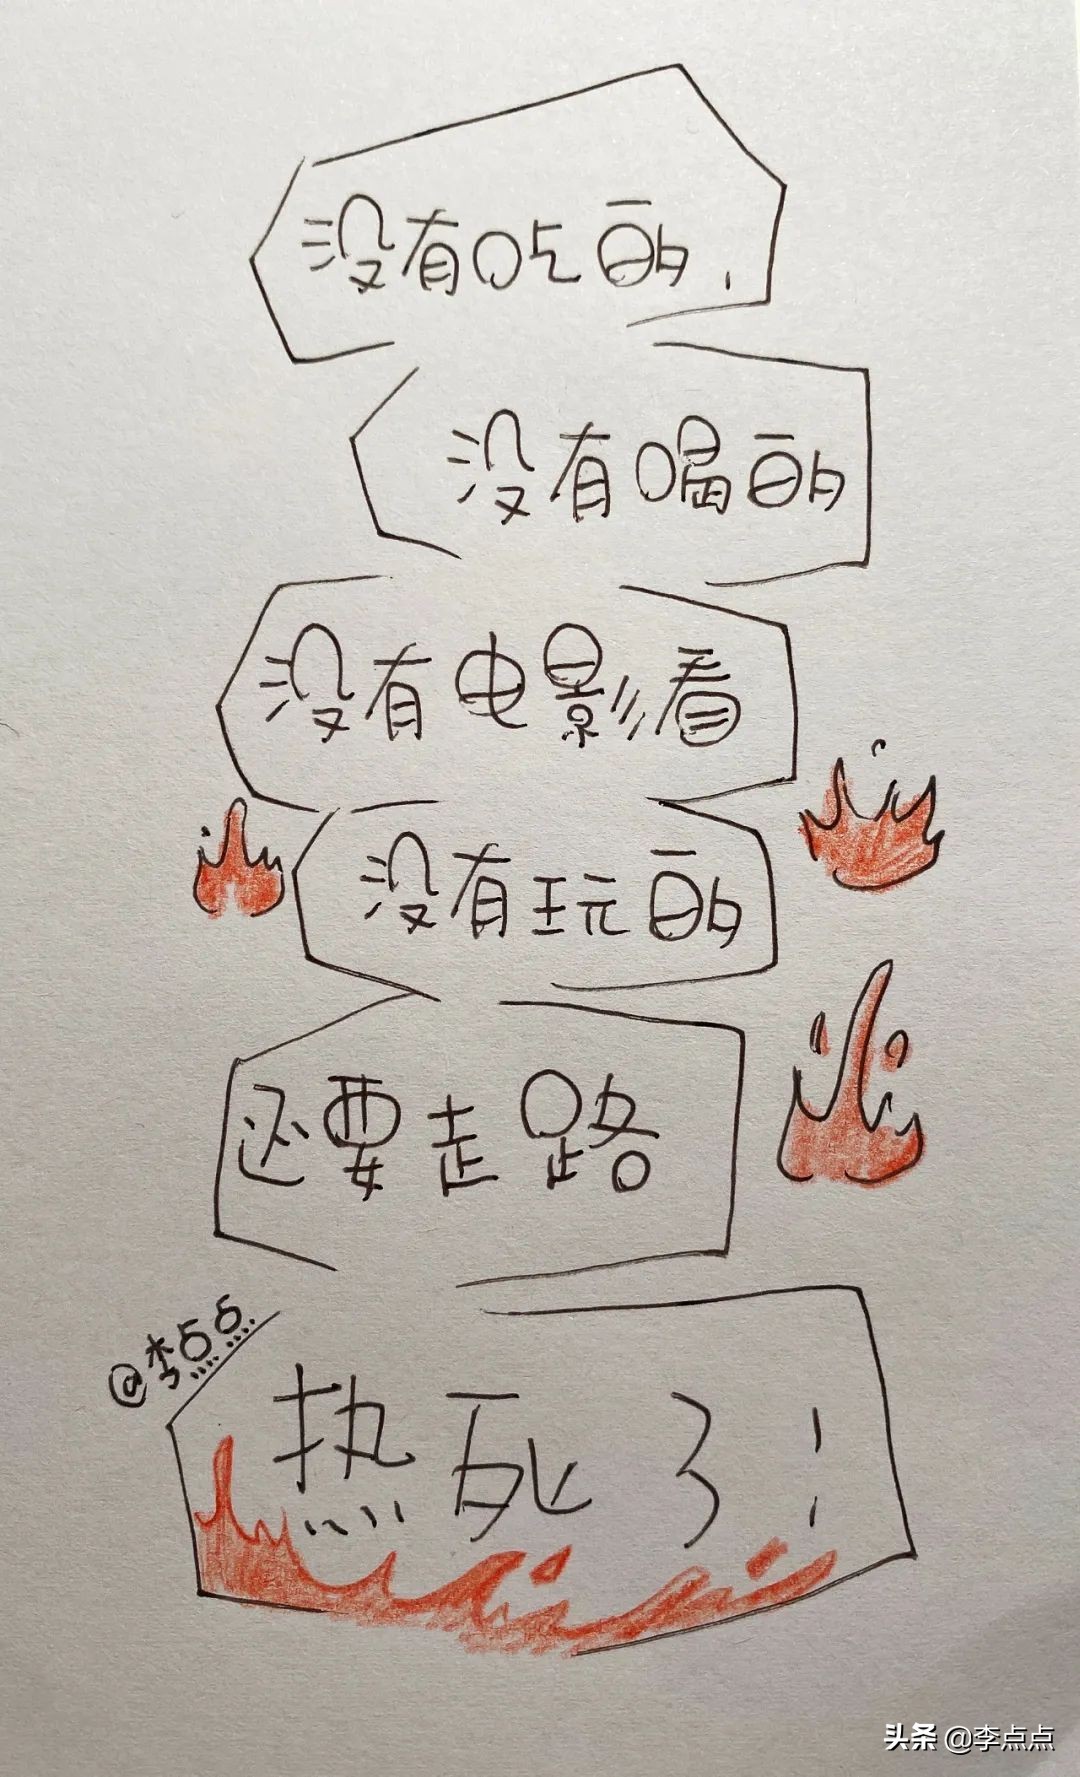 没有吃的，
没有喝的
没有电影看
没有玩的
还要走路
@李点点
热死了！
头条 @李点点